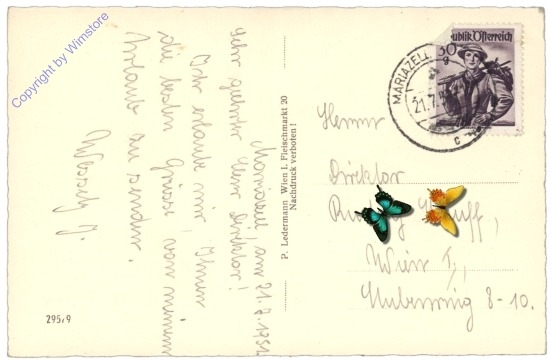 Copyright by Wimstore
Mariazell, am 21.7.1951
Sehr geehrter Herr Direktor!
Ich erlaube mir, Ihnen
die besten Grüsse von meinem
Urlaub zu senden.
Wessely J.
P. Ledermann Wien I. Fleischmarkt 20
Nachdruck verboten!
295/9
Republik Österreich
30
g
MARIAZELL
21.7.
c
Herrn
Direktor
Wien I.,
8-10.